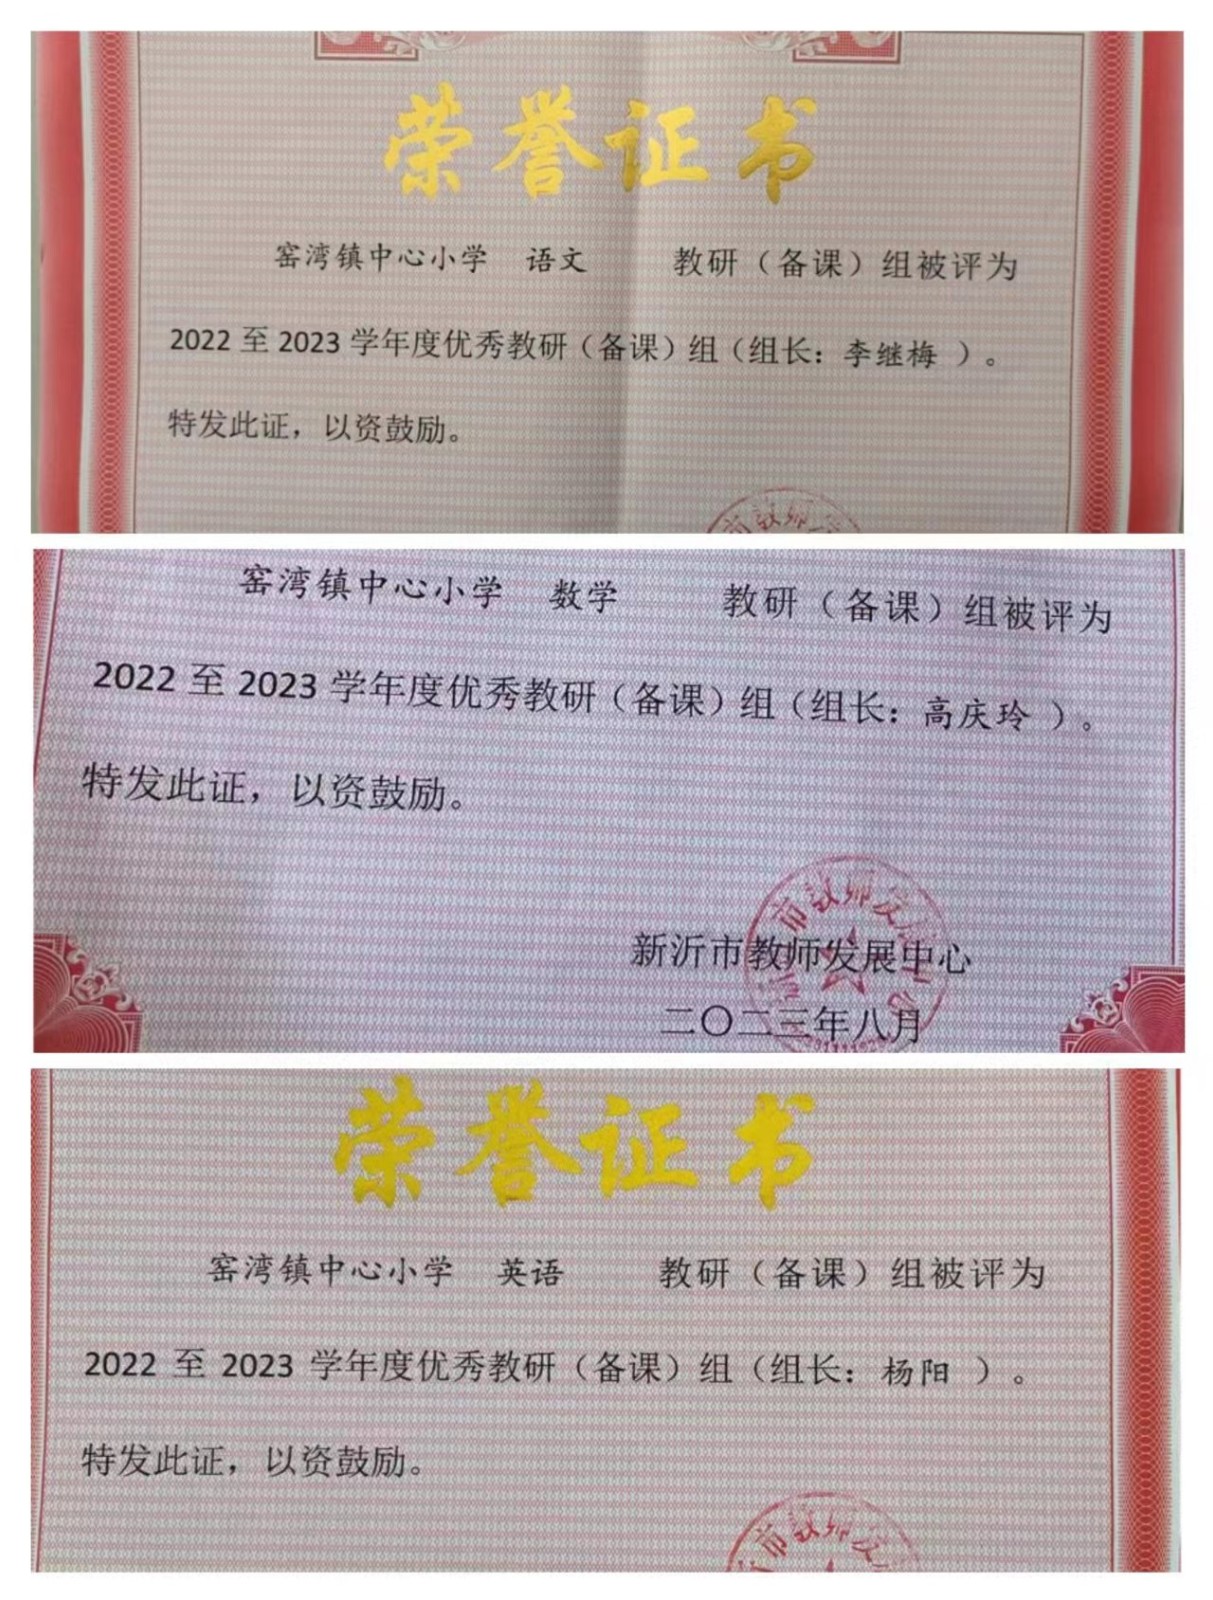 荣誉证书
窑湾镇中心小学 语文 教研（备课）组被评为
2022 至 2023 学年度优秀教研（备课）组（组长：李继梅 ）。
特发此证，以资鼓励。
市教师发
窑湾镇中心小学 数学 教研（备课）组被评为
2022 至 2023 学年度优秀教研（备课）组（组长：高庆玲 ）。
特发此证，以资鼓励。
新沂市教师发展中心
二〇二三年八月
荣誉证书
窑湾镇中心小学 英语 教研（备课）组被评为
2022 至 2023 学年度优秀教研（备课）组（组长：杨阳 ）。
特发此证，以资鼓励。
市教师发